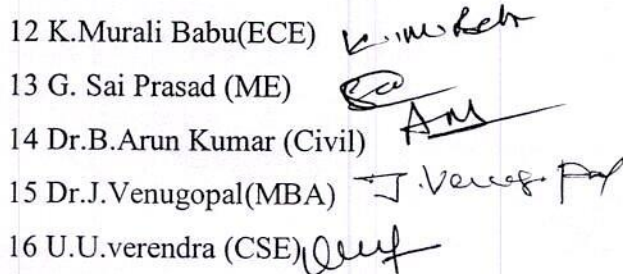 12 K.Murali Babu(ECE)
13 G. Sai Prasad (ME)
14 Dr.B.Arun Kumar (Civil)
15 Dr.J.Venugopal(MBA) J. Venugopal
16 U.U.verendra (CSE)